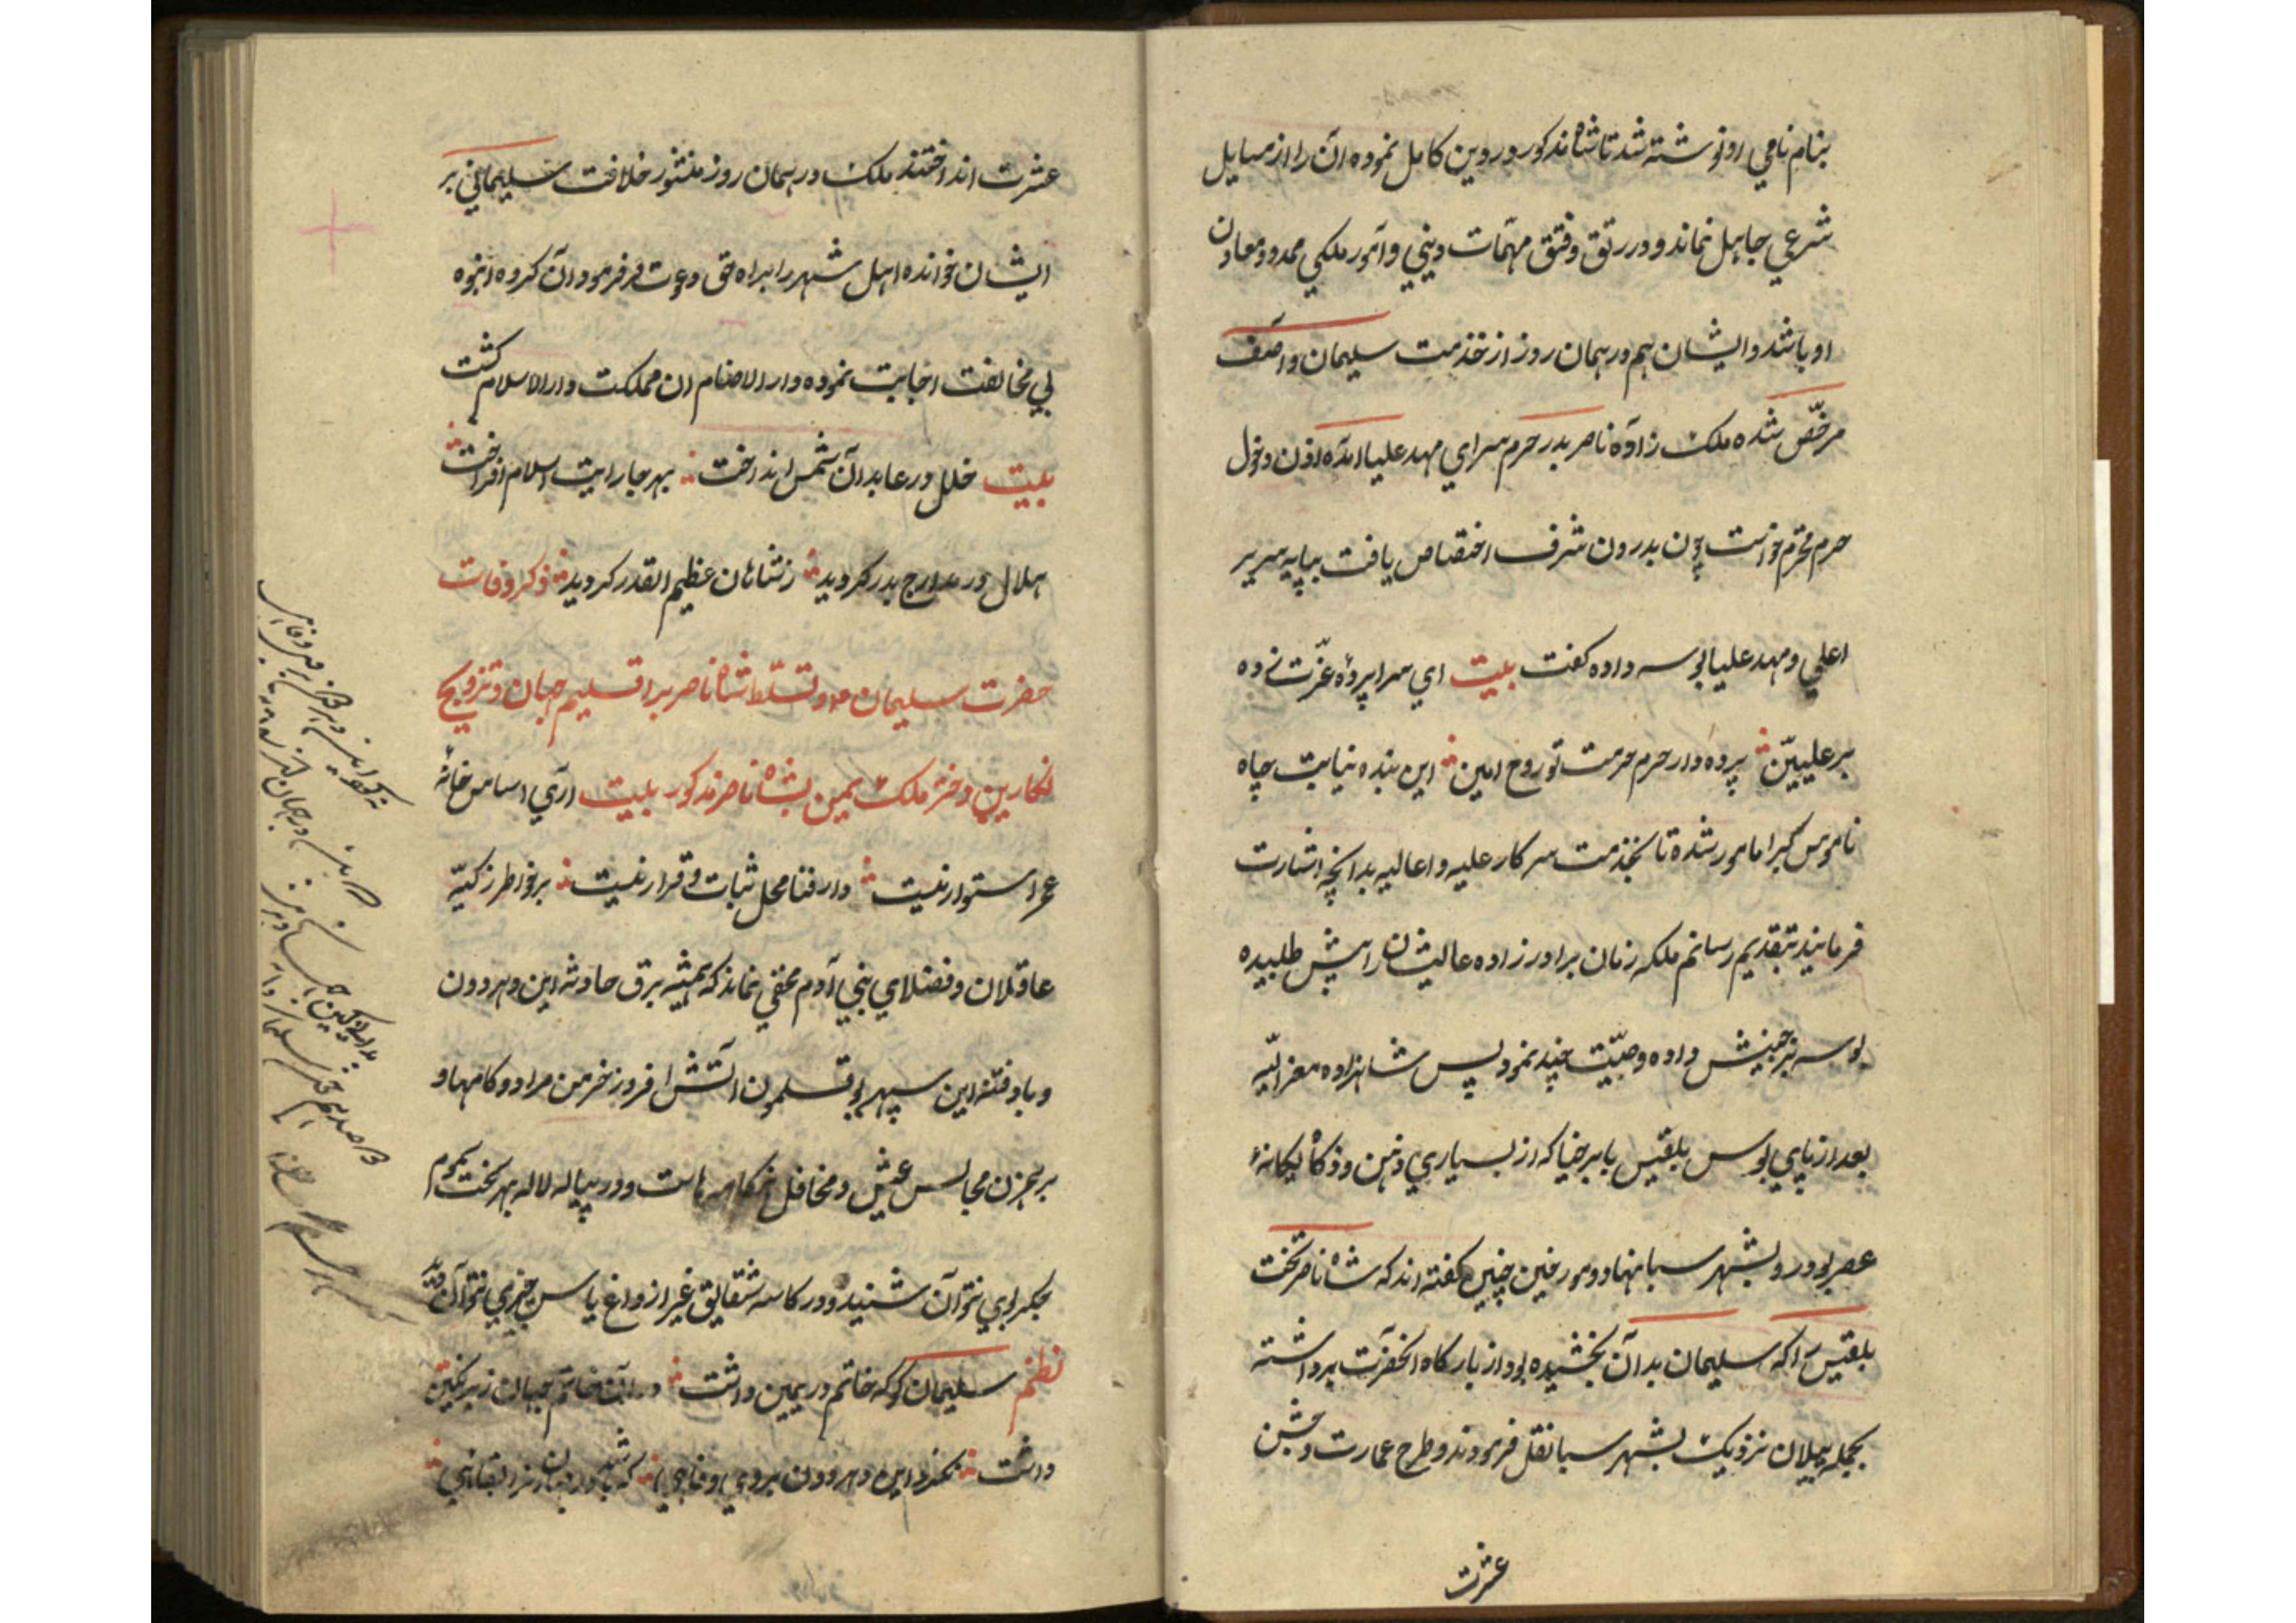 بنام نامی او نوشته شد تا شاه مذکور در دین کامل نموده آن را از مسایل
شرعی جاهل نماند و در رتق و فتق مهمّات دینی و امور ملکی ممد و معاون
او باشد و ایشان هم در همان روز از خدمت سلیمان و آصف
مرخّص شده ملک زاده ناصر بدر حرم سرای مهد علیا آمده اذن دخول
حرم محترم خواست چون بدرون شرف اختصاص یافت بپایه سریر
اعلی و مهد علیا بوسه داده گفت بیت ای سراپردهٔ عزّت زده
بر علییّن پرده دار حرم حرمت تو روح امین این بنده نیابت جاه
ناموس کبرا مامور شده تا بخدمت سرکار علیه و اعالیه بدانچه اشارت
فرمایند بتقدیم رسانم ملکه زمان برادر زاده عالیشان را پیش طلبیده
بوسه بر جبینش داده وصیّت چند نمود پس شاهزاده معزالیه
بعد از پای بوس بلقیس بابرخیا که از بسیاری ذهن و ذکا یگانهٔ
عصر بود رو بشهر سبا نهاد و مورخین چنین گفته اند که شاه ناصر تخت
بلقیس را که سلیمان بدآن بخشیده بود از بارگاه آنحضرت برداشته
بحمله پیلان نزدیک بشهر سبا نقل فرمودند و طرح عمارت و جشن
عشرت
عشرت انداختند ملک در همان روز منشور خلافت سلیمانی بر
ایشان خوانده اهل شهر را براه حق دعوت فرمود آن گروه انبوه
بی مخالفت اجابت نموده دار الاصنام ان مملکت دار الاسلام گشت
بیت خلل در عابد آن شمس انداخت بهر جا رایت اسلام افراخت
هلال در مدارج بدر گردید ز شاهان عظیم القدر گردید ذکر وفات
حضرت سلیمان و تسلّط شاه ناصر بر اقلیم جهان و تزویج
نگارین دختر ملک یمین بشاه ناصر مذکور بیت آری اساس خانهٔ
عمر استوار نیست دار فنا محل ثبات و قرار نیست بر خواطر زکیّه
عاقلان و فضلای بنی آدم مخفی نماند که همیشه برق حادثه این دهر دون
و باد فتنه این سپهر بوقلمون آتش افروز خرمن مراد و کامها و
بر همزن مجالس عیش و محافل هنگامه هاست و در پیاله لاله بهر بخت
بجز بوی نتوآن شنید و در کاسه شقایق غیر از داغ یاس چیزی نتوآن
نظم سلیمان کو که خاتم در یمین داشت در آن خاتم جهان زیر نگین
داشت این دهر دون بروی وفایی که باشد در جهان نزد بقایی